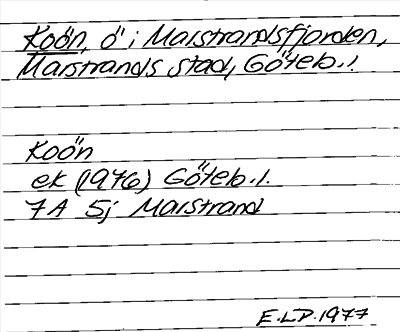 Koön, ö i Marstrandsfjorden,
Marstrands stad, Göteb. l.
Koön
ek (1976) Göteb. l.
7A 5j Marstrand
E.L.D. 1977